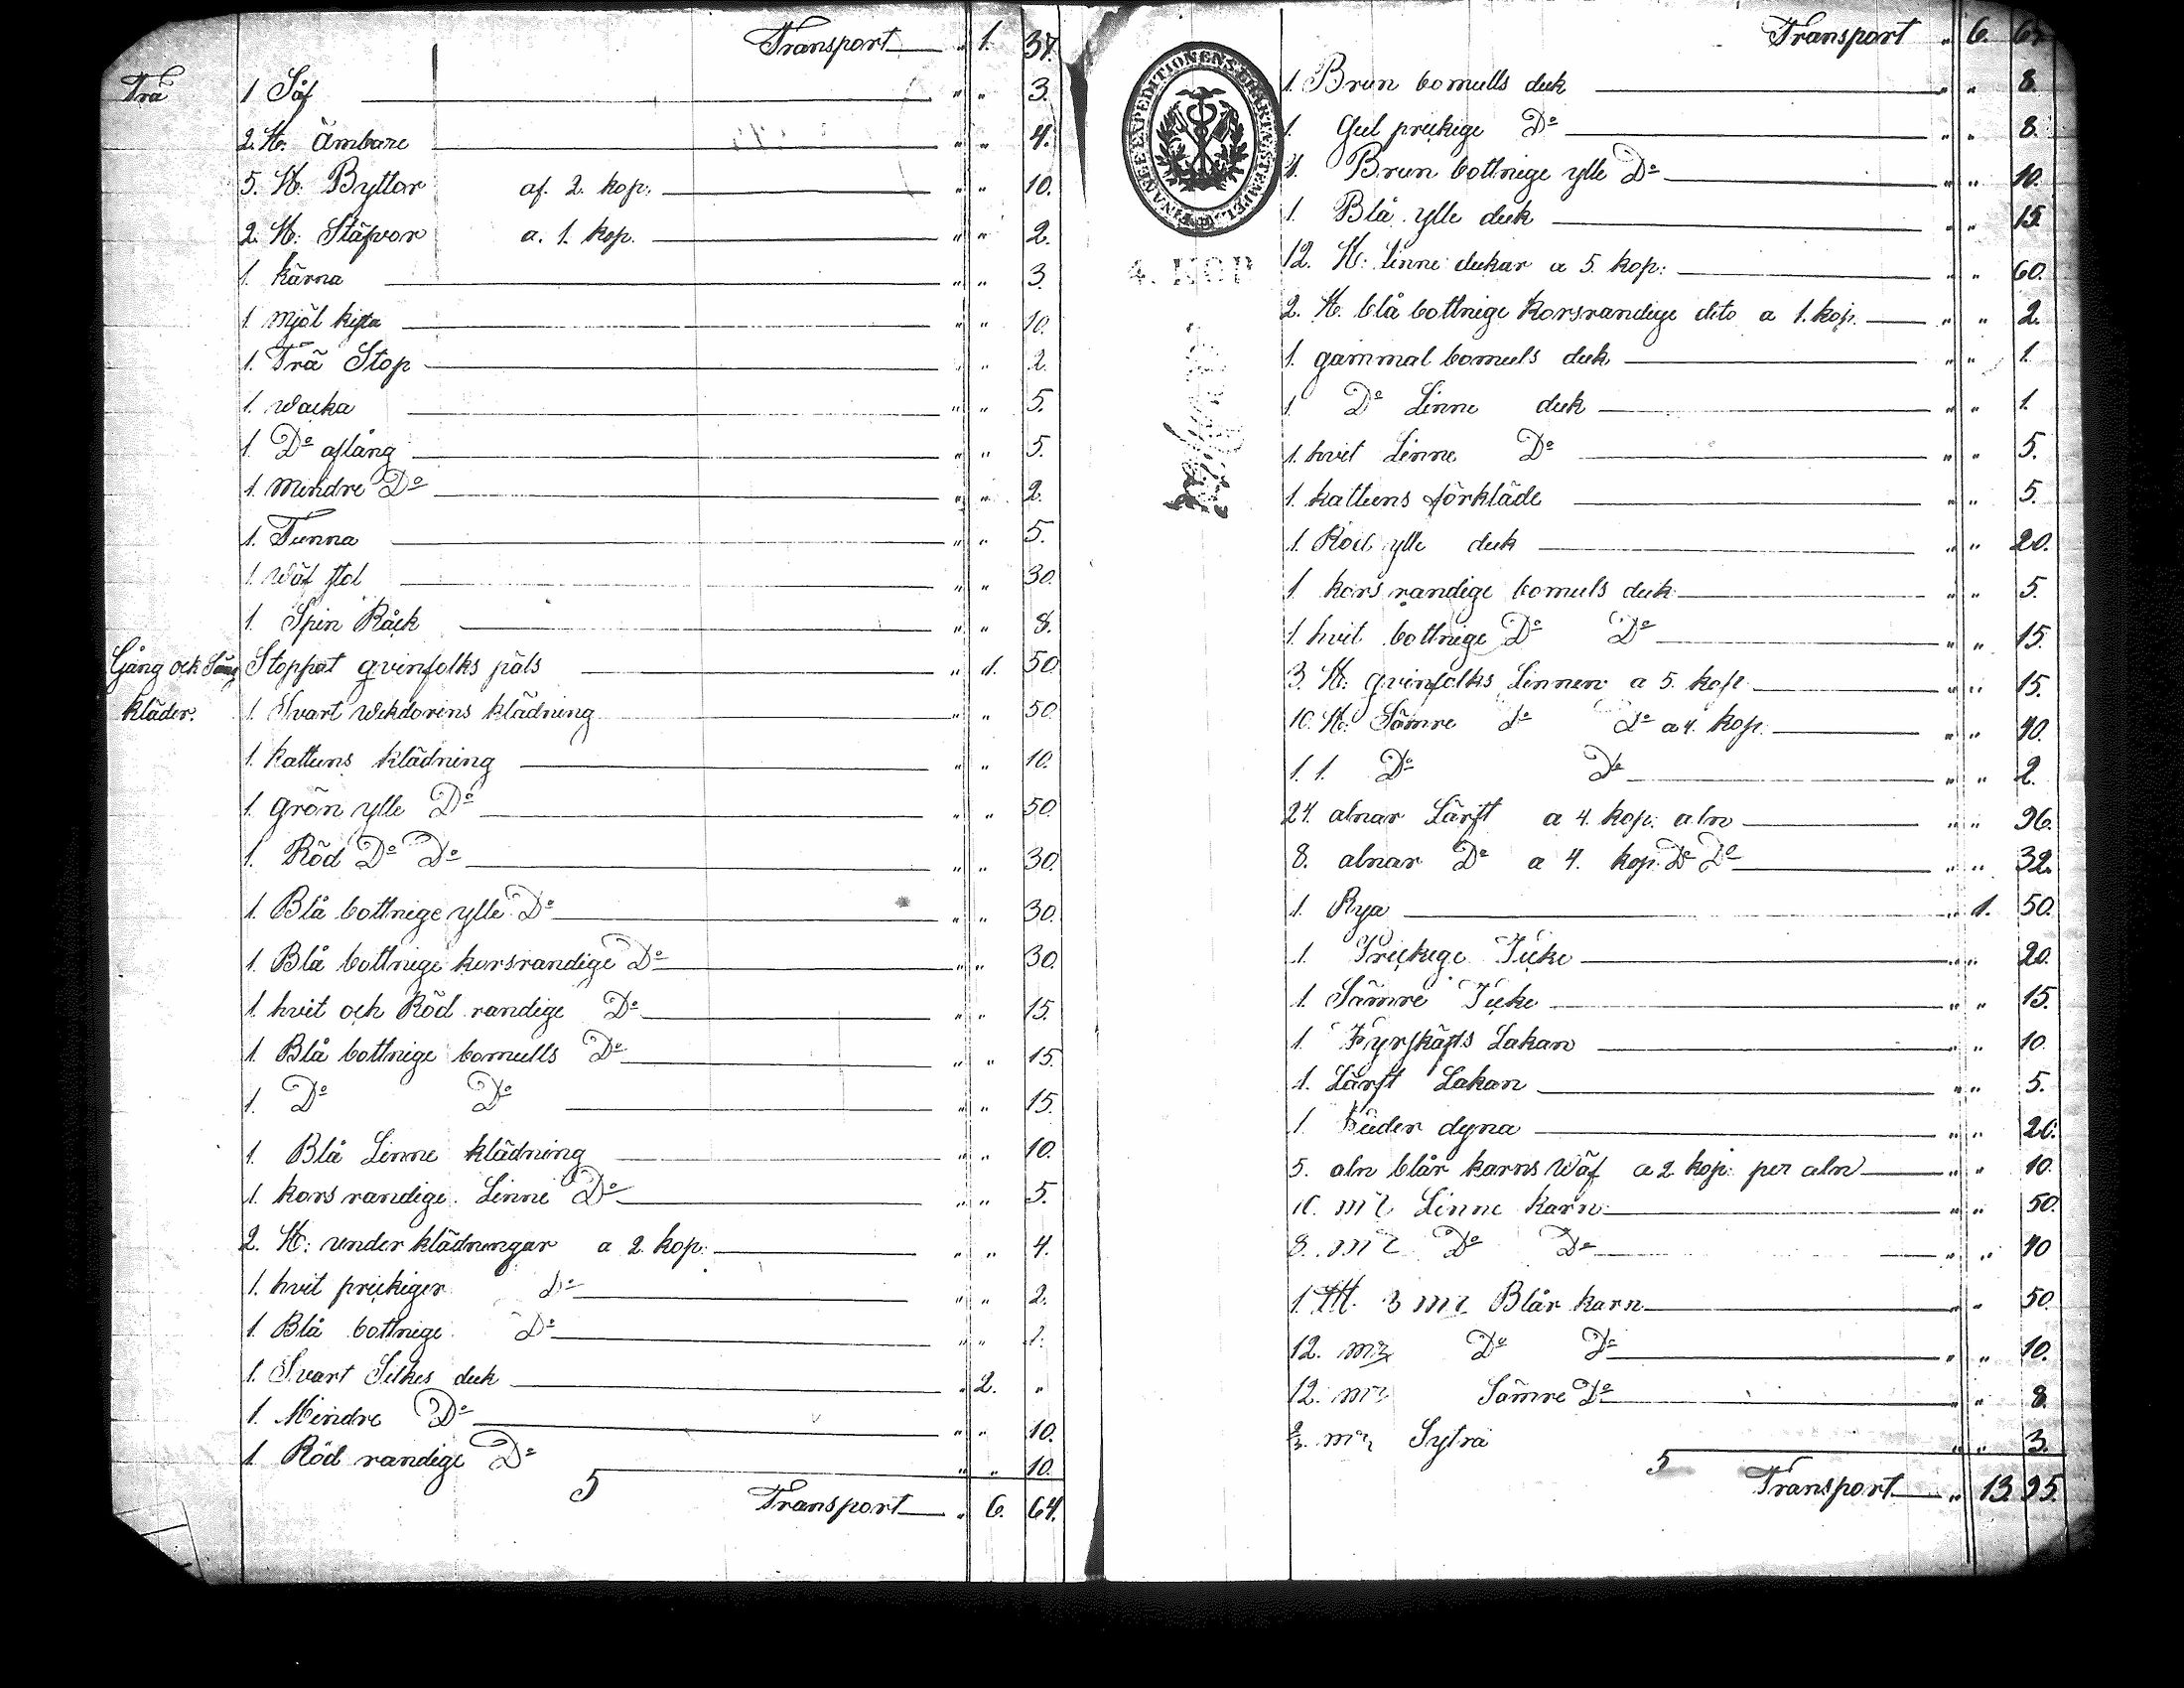 Transport „ 1. 37.
Trä 1 Såf „ „ 3.
2. St. Ämbare „ „ 4.
5. St: Byttor af. 2. kop: „ „ 10.
2. St: Stäfvor a. 1. kop. „ „ 2.
1. kärna „ „ 3.
1. Mjöl kista „ „ 10.
1. Trä Stop „ „ 2.
1. Wacka „ „ 5.
1. Do aflång „ „ 5.
1. Mindre Do „ „ 2.
1. Tunna „ „ 5.
1. Wäf stol „ „ 30.
1. Spin Råck „ „ 8.
Gång och Säng Stoppat qvinfolks päls „ 1. 50
kläder. 1. Svart klädning „ „ 50.
1. Kattuns klädning „ „ 10.
1. grön ylle Do „ „ 50.
1. Röd Do Do „ „ 30.
1. Blå bottnige ylle Do „ „ 30.
1. Blå bottnige korsrandige Do „ „ 30.
1. hvit och Röd randige Do „ „ 15.
1. Blå bottnige bomulls Do „ „ 15.
1. Do Do „ „ 15.
1. Blå Linne klädning „ „ 10.
1. kors randige Linne Do „ „ 5.
2. St: underklädningar a 2 kop: „ „ 4.
1. hvit prickiger do „ „ 2.
1. Blå bottnige Do „ „ 1.
1. Svart Silkes duk „ 2. „
1. Mindre Do „ „ 10.
1. Röd randige Do „ „ 10.
5 Transport „ 6. 64.
Transport „ 6. 64.
FINANCE EXPEDITIONENS CHARTÆ STEMPEL
4. KOP
1. Brun bomulls duk „ „ 8.
1. Gul prickige Do „ „ 8.
1. Brun bottnige ylle Do „ „ 10.
1. Blå ylle duk „ „ 15.
12. St: linne dukar a 5. kop: „ „ 60.
2. St. blå bottnige korsrandige dito a 1. kop. „ „ 2.
1. gammal bomuls duk „ „ 1.
1. Do Linne duk „ „ 1.
1. hvit Linne Do „ „ 5.
1. kattuns förkläde „ „ 5.
1. Röd ylle duk „ „ 20.
1 kors randige bomuls duk „ „ 5.
1. hvit bottnige Do Do „ „ 15.
3. St: qvinfolks Linnen a 5. kop „ „ 15.
10. St: Sämre do Do a 4. kop. „ „ 40.
1. 1. Do Do „ „ 2.
24. alnar Lärft a 4. kop: aln „ „ 96.
8. alnar Do a 4. kop. Do Do „ „ 32.
1. Rya „ 1. 50.
1. Prickige Täcke „ „ 20.
1. Sämre Täcke „ „ 15.
1. Fyrskäfts Lakan „ „ 10.
1. Lärft Lakan „ „ 5.
1. dyna „ „ 20.
5. aln blår karns Wäf a 2 kop: per aln „ „ 10.
10. Linne karn „ „ 50.
8. Do Do „ „ 40
1. 3 Blår karn „ „ 50.
12. Do Do „ „ 10.
12. Sämre Do „ „ 8.
„ „ 3.
5 Transport „ 13. 95.